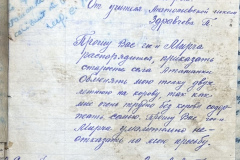 От учителя Мартыновской школы
Здравчева
Прошу Вас г-н Мирга
распорядится, приказать
старосте села
Обменять мою телку двух
летнюю на корову, так как
мне очень трудно без коровы содер
жать, семью. Прошу Вас г-н
Мирга убедительно не
отказать на мою просьбу.